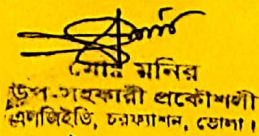 মোঃ মনির
উপ-সহকারী প্রকৌশলী
এলজিইডি, চরফ্যাশন, ভোলা।